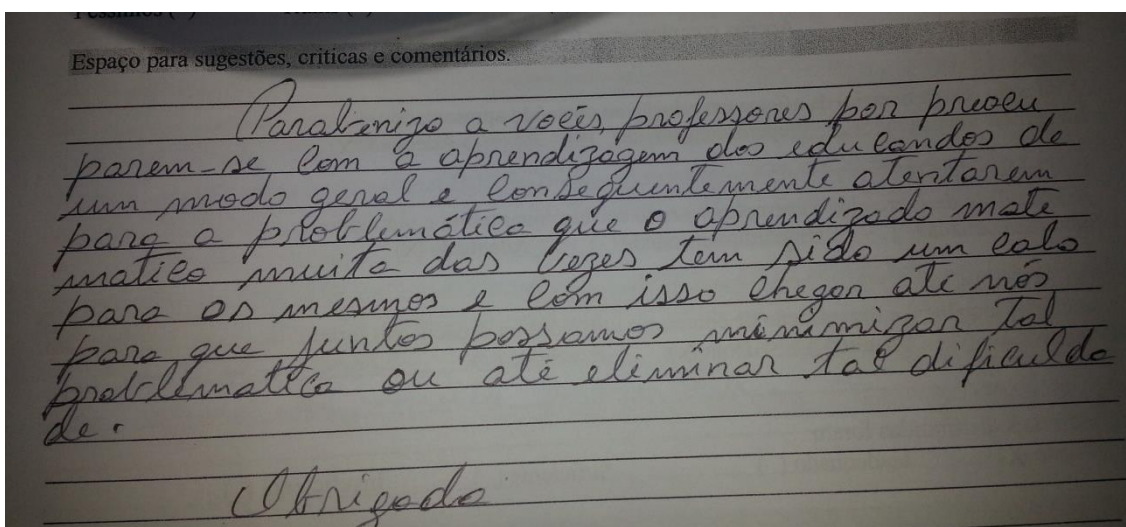 Espaço para sugestões, criticas e comentários.
Parabenizo a vocês, professores por preocu
parem-se com a aprendizagem dos educandos de
um modo geral e consequentemente atentarem
para a problemática que o aprendizado mate
matico muita das vezes tem sido um calo
para os mesmos e com isso chegar até nós
para que juntos possamos minimizar tal
problematica ou até eliminar tal dificulda
de.
Obrigado